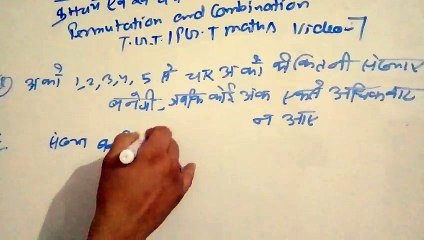 क्रमचय एवं संचय
Permutation and Combination
T.G.T / P.G.T maths Video-7
अंको 1,2,3,4, 5 से चार अंको की कितनी संख्याए
बनेगी, जबकि कोई अंक एकसे अधिक बार
न आए
संख्या